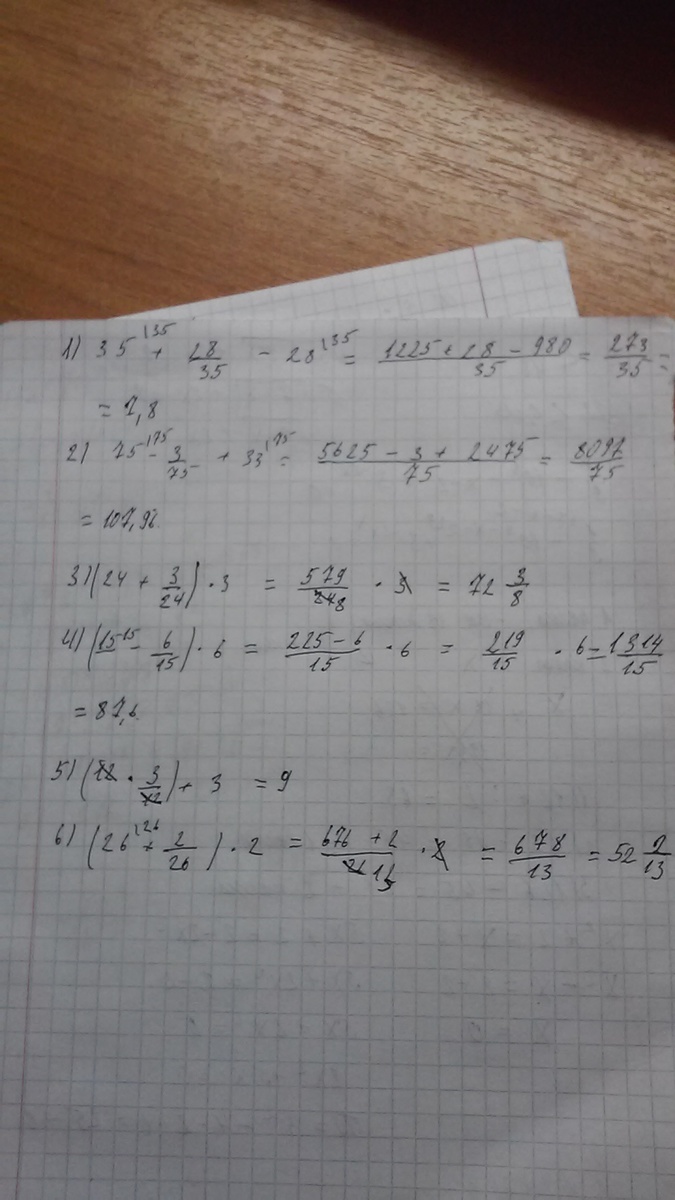 1) 35^{135} + 28/35 - 28^{135} = 1225 + 28 - 980/35 = 273/35 =
= 7,8
2) 75^{175} - 3/75 + 33^{175} = 5625 - 3 + 2475/75 = 8097/75
= 107,96
3) (24 + 3/24) · 3 = 579/24 8 · 3 = 72 3/8
4) (15^{15} - 6/15) · 6 = 225 - 6/15 · 6 = 219/15 · 6 = 1314/15
= 87,6
5) (12 · 3/12) + 3 = 9
6) (26^{126} + 2/26) · 2 = 676 + 2/26 13 · 2 = 678/13 = 52 2/13